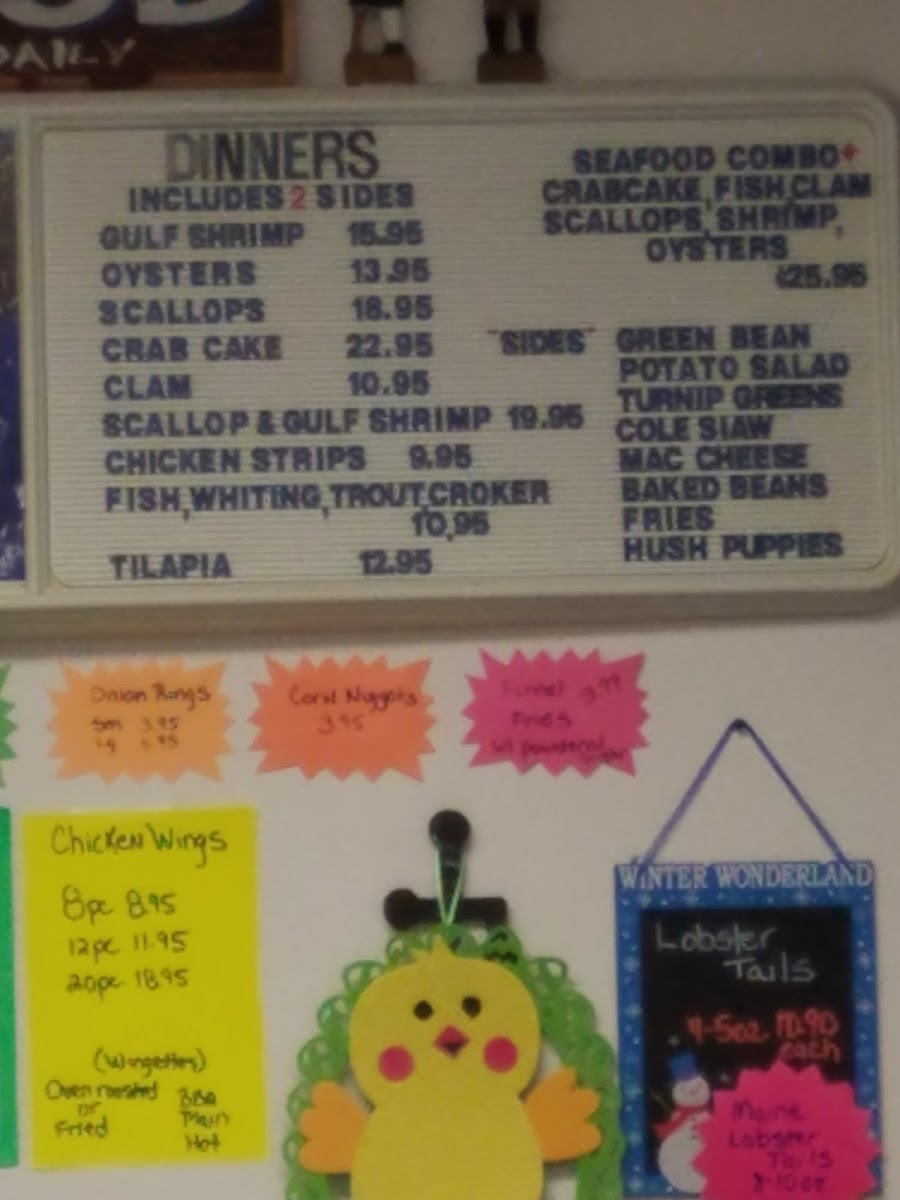 DAILY
DINNERS
INCLUDES 2 SIDES
GULF SHRIMP 15.95
OYSTERS 13.95
SCALLOPS 18.95
CRAB CAKE 22.95
CLAM 10.95
SCALLOP & GULF SHRIMP 19.95
CHICKEN STRIPS 9.95
FISH,WHITING,TROUT,CROKER
10,95
TILAPIA 12.95
SEAFOOD COMBO
CRABCAKE,FISH,CLAM
SCALLOPS,SHRIMP,
OYSTERS
25.95
"SIDES"
GREEN BEAN
POTATO SALAD
TURNIP GREENS
COLE SlAW
MAC CHEESE
BAKED BEANS
FRIES
HUSH PUPPIES
Onion Rings
sm 3.95
Corn Nuggets
3.95
Funnel 3.99
Fries
w/ powdered
Chicken Wings
8pc 8.95
12pc 11.95
20pc 18.95
(Wingettes)
Oven roasted
or
Fried
BBQ
Plain
Hot
WINTER WONDERLAND
Lobster
Tails
4-5oz
each
Maine
Lobster
Tails
8-10oz